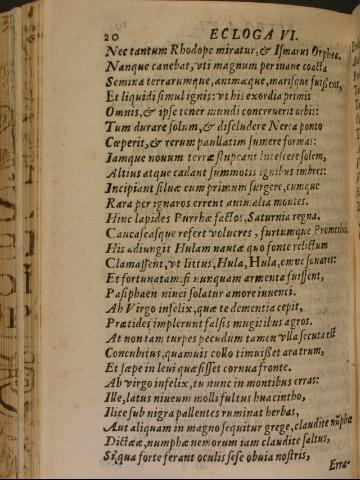 20 ECLOGA VI.
Nec tantum Rhodope miratur, & Ismarus Orphea.
Nanque canebat, vti magnum per inane coacta
Semina terrarumque, animæque, marisque fuissent,
Et liquidi simul ignis: vt his exordia primis
Omnis, & ipse tener mundi concreuerit orbis:
Tum durare solum, & discludere Nerea ponto
Cœperit, & rerum paullatim sumere formas:
Iamque nouum terræ stupeant lucescere solem,
Altius atque cadant summotis ignibus imbres:
Incipiant siluæ cum primum surgere, cumque
Rara per ignaros errent animalia montes.
Hinc lapides Purrhæ factos, Saturnia regna,
Caucaseasque refert volucres, furtumque Promethei.
His adiungit Hulam nautæ quo fonte relictum
Clamassent, vt littus, Hula, Hula, omne sonaret:
Et fortunatam, si nunquam armenta fuissent,
Pasiphaen niuei solatur amore iuuenci.
Ah Virgo infelix, quæ te dementia cepit,
Prœtides implerunt falsis mugitibus agros.
At non tam turpes pecudum tamen vlla secuta est
Concubitus, quamuis collo timuisset aratrum,
Et sæpe in leui quæsisset cornua fronte.
Ah virgo infelix, tu nunc in montibus erras:
Ille, latus niueum molli fultus huacintho,
Ilice sub nigra pallentes ruminat herbas,
Aut aliquam in magno sequitur grege, claudite numphæ
Dictææ, numphæ nemorum iam claudite saltus,
Si qua forte ferant oculis sese obuia nostris,
Erra-